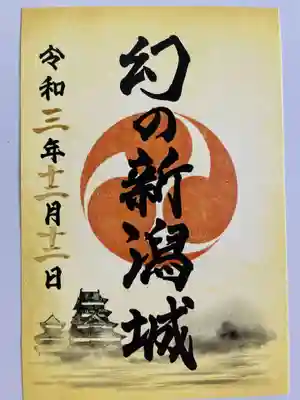 幻の新潟城
令和三年十二月十二日